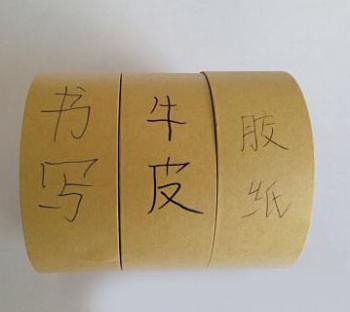 书写
牛皮
胶纸